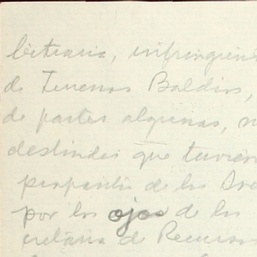 infringiendo
de Terrenos Baldíos,
de partes algunas,
deslindes que tuvieron
proposito de los
por los ojos de los
cretaria de Recursos